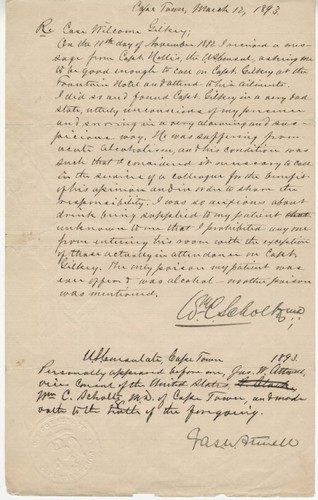 Cape Town, March 12, 1893.
Re Case Welcome Gilkey;
On the 11th day of November 1892 I received a mes-
sage from Capt. Hollis, the US Consul, asking me
to be good enough to call on Capt. Gilkey at the
Fountain Hotel and attend to his ailments.
I did so and found Capt. Gilkey in a very bad
state, utterly unconscious of my presence
and snoring in a very alarming and sus-
picious way. He was suffering from
acute alcoholism, and his condition was
such that I considered it necessary to call
in the services of a colleague for the benefit
of his opinion and in order to share the
responsibility. I was so anxious about
drink being supplied to my patient
unknown to me that I prohibited any one
from entering his room with the exception
of those actually in attendance on Capt.
Gilkey. The only poison my patient was
ever offered was alcohol - no other poison
was mentioned.
Wm C. Scholtz MD;
US Consulate, Cape Town 1893.
Personally appeared before me, Jas. W. Attwell,
vice Consul of the United States,
Wm C. Scholtz, M.D. of Cape Town, and made
oath to the truth of the foregoing.
Jas W Attwell